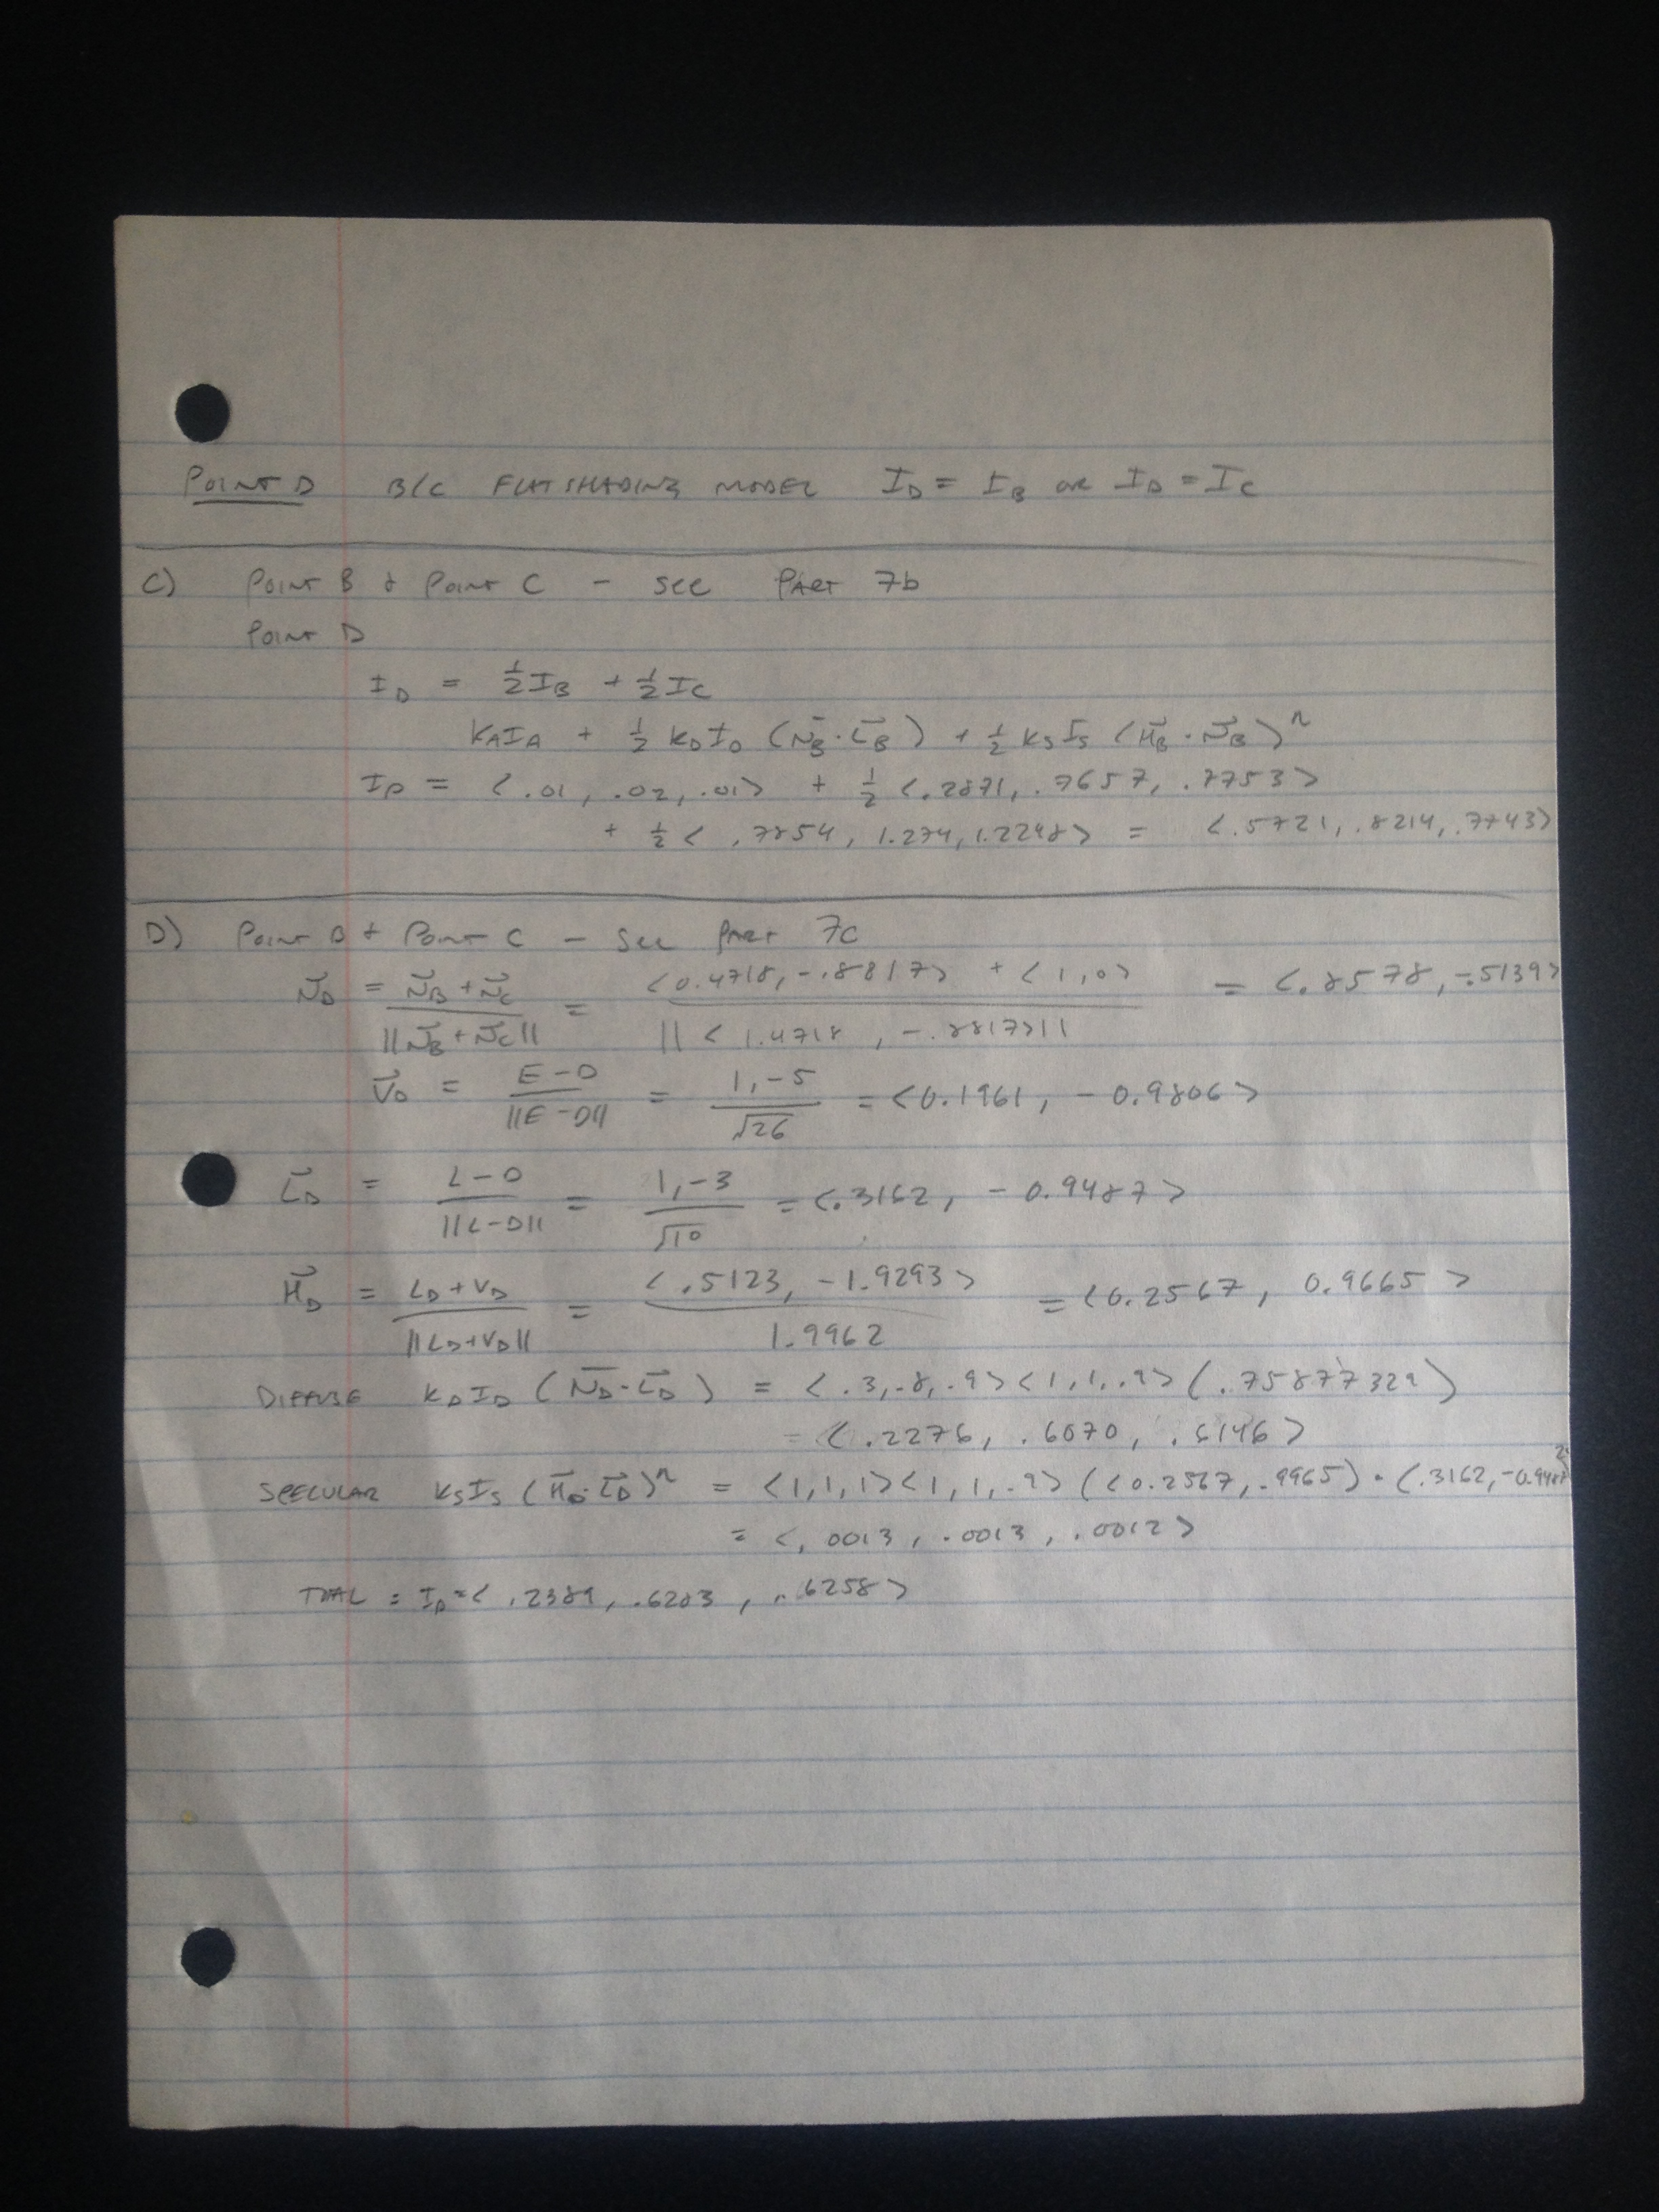 POINT D B/C FLAT SHADING MODEL I_D = I_B OR I_D = I_C
C) POINT B + POINT C - SEE PART 7b
POINT D
I_D = 1/2 I_B + 1/2 I_C
K_A I_A + 1/2 K_D I_D (N_B · L_B) + 1/2 K_S I_S (H_B · N_B)^n
I_D = <.01, .02, .01> + 1/2 <.2871, .7657, .7753>
+ 1/2 < .7854, 1.274, 1.2248> = <.5721, .8214, .7743>
D) POINT B + POINT C - SEE PART 7c
N_D = (N_B + N_C) / ||N_B + N_C|| = (<0.4718, -.8817> + <1, 0>) / ||<1.4718, -.8817>|| = <.8578, -.5139>
V_D = (E - D) / ||E - D|| = 1, -5 / √26 = <0.1961, -0.9806>
L_D = (L - D) / ||L - D|| = 1, -3 / √10 = <.3162, -0.9487>
H_D = (L_D + V_D) / ||L_D + V_D|| = <.5123, -1.9293> / 1.9962 = <0.2567, 0.9665>
DIFFUSE K_D I_D (N_D · L_D) = <.3, .8, .9><1, 1, .9> (.75877329)
= <.2276, .6070, .6146>
SPECULAR K_S I_S (H_D · L_D)^n = <1,1,1><1,1,.9> (<0.2567, .9965> · (.3162, -0.9487)
= <.0013, .0013, .0012>
TOTAL = I_D = <.2389, .6283, .6258>